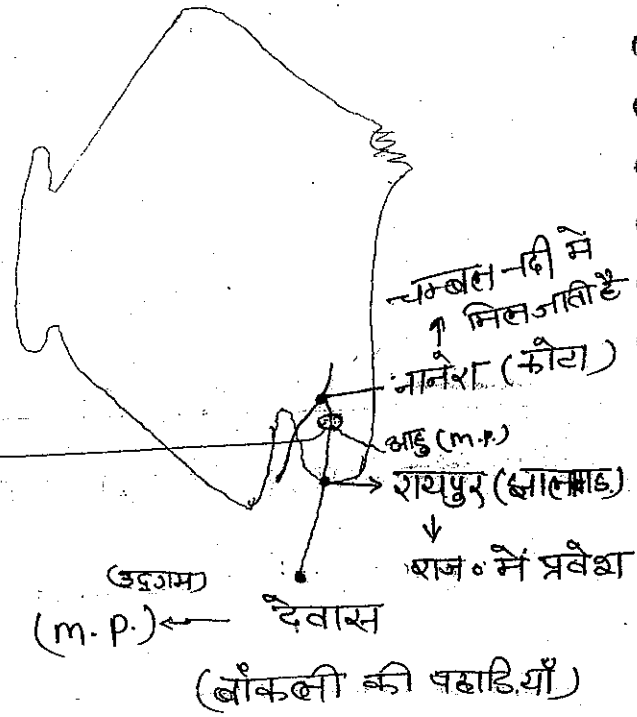 चम्बल नदी में
↑ मिल जाती है
नानेरा (कोटा)
आहु (m.p.)
→ रायपुर (झालावाड़)
↓
राज० में प्रवेश
(उद्गम)
(m.p.) ← देवास
(बांकली की पहाड़ियाँ)